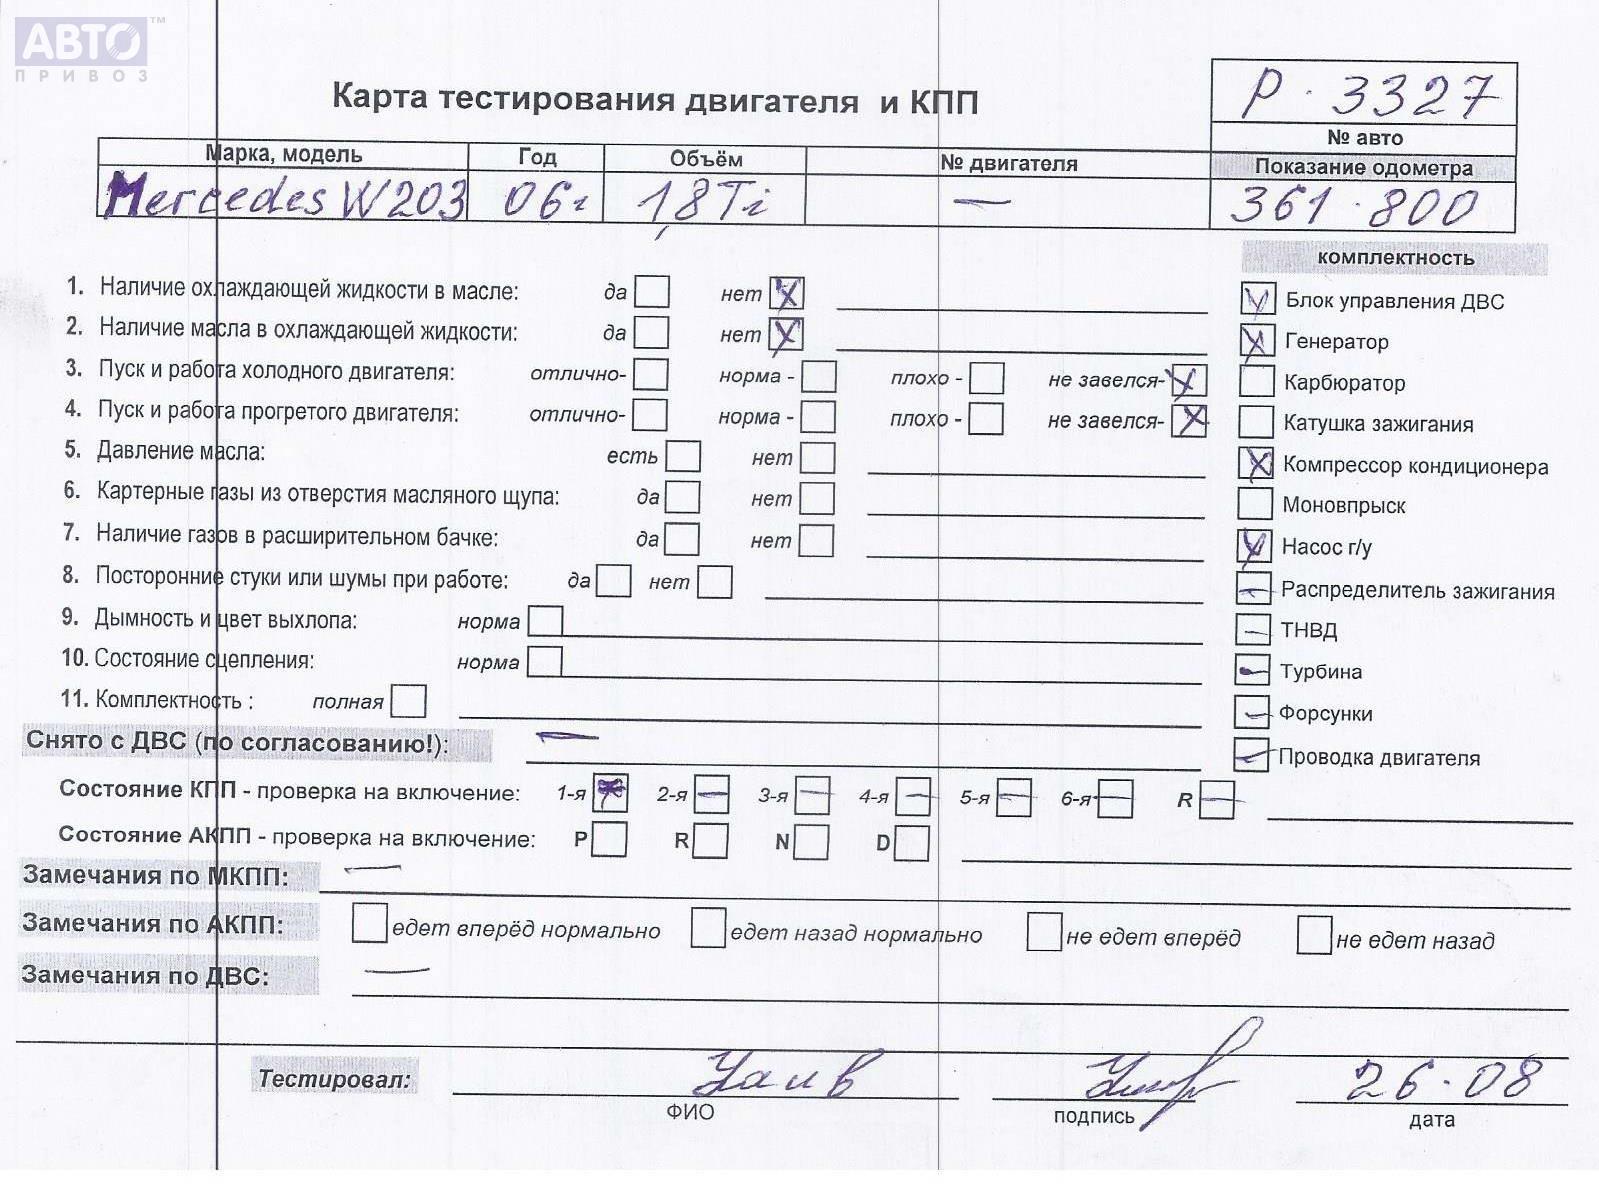 АВТО™
ПРИВОЗ
Карта тестирования двигателя и КПП
Р · 3327
№ авто
Марка, модель Год Объём № двигателя Показание одометра
Mercedes W203 06г 1,8Ti — 361 · 800
комплектность
1. Наличие охлаждающей жидкости в масле: да нет
2. Наличие масла в охлаждающей жидкости: да нет
3. Пуск и работа холодного двигателя: отлично- норма - плохо - не завелся-
4. Пуск и работа прогретого двигателя: отлично- норма - плохо - не завелся-
5. Давление масла: есть нет
6. Картерные газы из отверстия масляного щупа: да нет
7. Наличие газов в расширительном бачке: да нет
8. Посторонние стуки или шумы при работе: да нет
9. Дымность и цвет выхлопа: норма
10. Состояние сцепления: норма
11. Комплектность : полная
Блок управления ДВС
Генератор
Карбюратор
Катушка зажигания
Компрессор кондиционера
Моновпрыск
Насос г/у
Распределитель зажигания
ТНВД
Турбина
Форсунки
Проводка двигателя
Снято с ДВС (по согласованию!): —
Состояние КПП - проверка на включение: 1-я 2-я 3-я 4-я 5-я 6-я R
Состояние АКПП - проверка на включение: P R N D
Замечания по МКПП: —
Замечания по АКПП: едет вперёд нормально едет назад нормально не едет вперёд не едет назад
Замечания по ДВС: —
Тестировал: 26·08
ФИО подпись дата